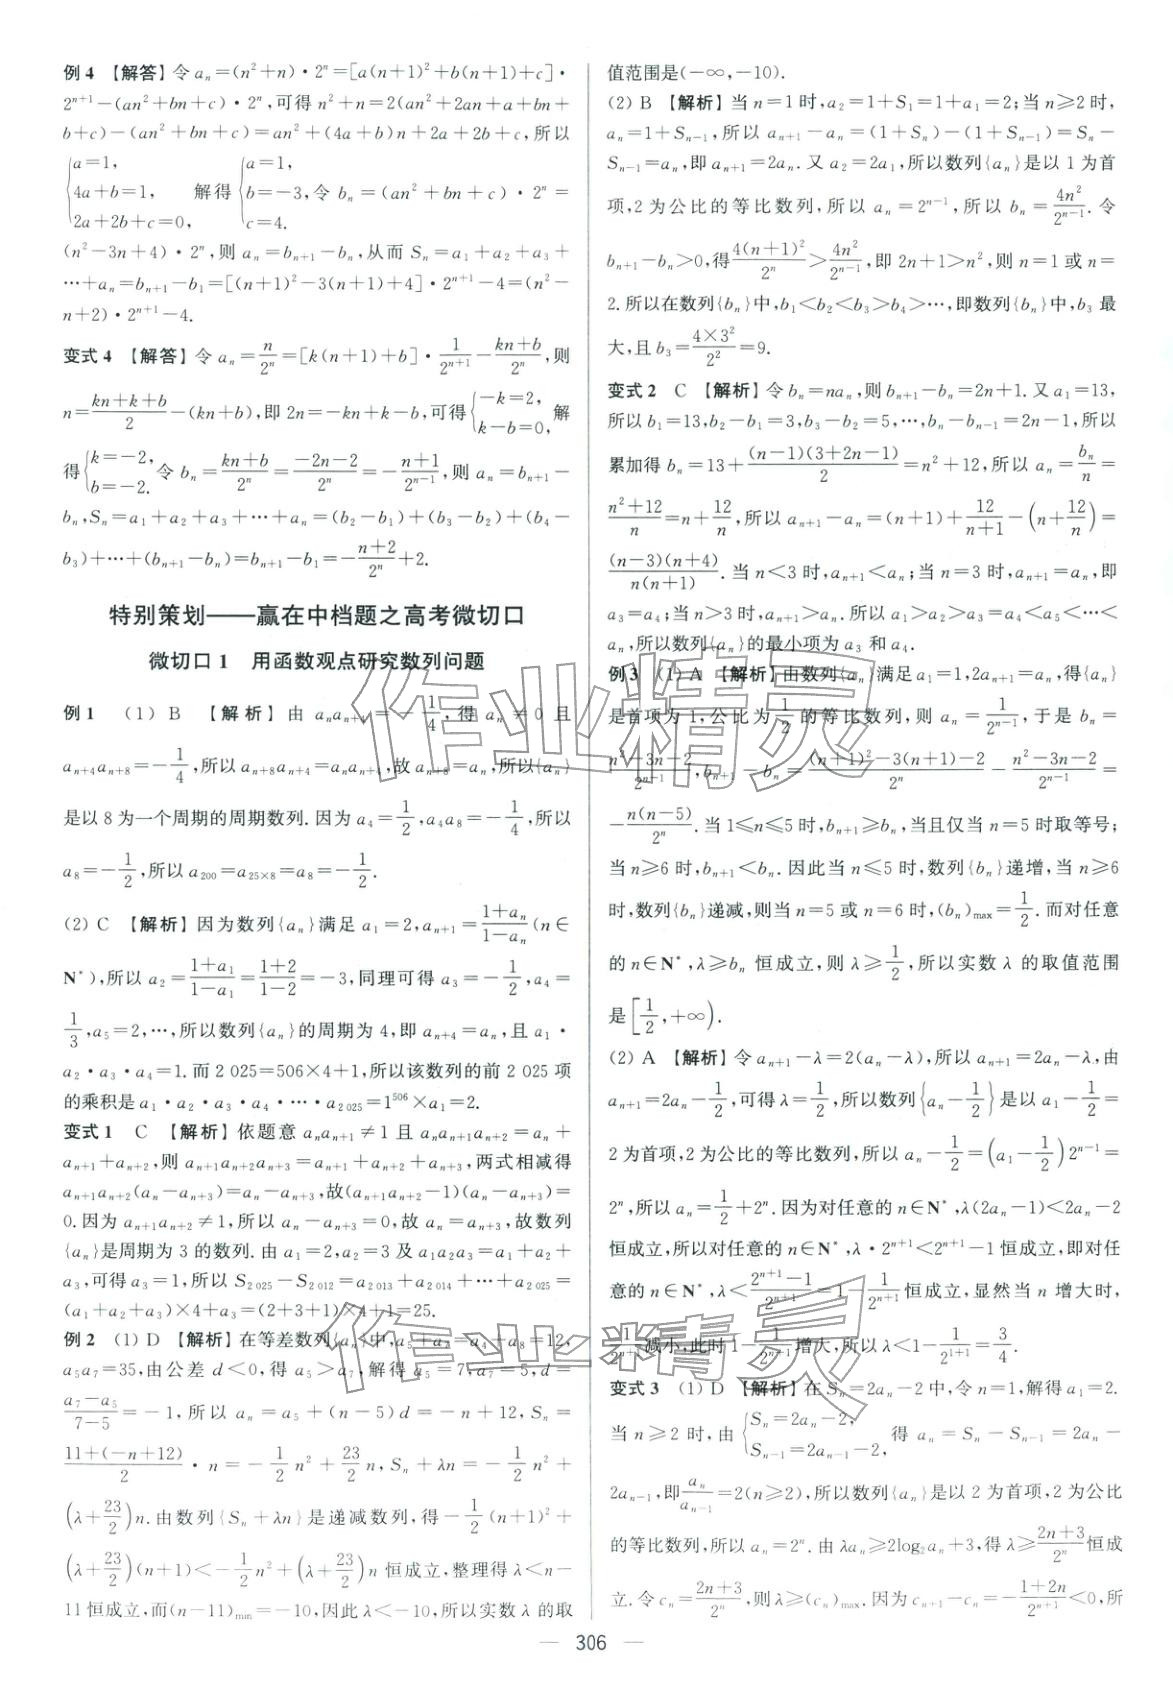 例 4 【解答】令 aₙ=(n²+n)·2ⁿ=[a(n+1)²+b(n+1)+c]·
2ⁿ⁺¹-(an²+bn+c)·2ⁿ,可得 n²+n=2(an²+2an+a+bn+
b+c)-(an²+bn+c)=an²+(4a+b)n+2a+2b+c,所以
{a=1, 4a+b=1, 2a+2b+c=0, 解得 {a=1, b=-3, c=4. 令 bₙ=(an²+bn+c)·2ⁿ=
(n²-3n+4)·2ⁿ,则 aₙ=bₙ₊₁-bₙ,从而 Sₙ=a₁+a₂+a₃+
…+aₙ=bₙ₊₁-b₁=[(n+1)²-3(n+1)+4]·2ⁿ⁺¹-4=(n²-
n+2)·2ⁿ⁺¹-4.
变式 4 【解答】令 aₙ=n/2ⁿ=[k(n+1)+b]·1/2ⁿ⁺¹-(kn+b)/2ⁿ,则
n=(kn+k+b)/2-(kn+b),即 2n=-kn+k-b,可得{-k=2, k-b=0, 解
得{k=-2, b=-2. 令 bₙ=(kn+b)/2ⁿ=(-2n-2)/2ⁿ=-(n+1)/2ⁿ⁻¹,则 aₙ=bₙ₊₁-
bₙ,Sₙ=a₁+a₂+a₃+…+aₙ=(b₂-b₁)+(b₃-b₂)+(b₄-
b₃)+…+(bₙ₊₁-bₙ)=bₙ₊₁-b₁=-(n+2)/2ⁿ+2.
特别策划——赢在中档题之高考微切口
微切口 1 用函数观点研究数列问题
例 1 (1) B 【解析】由 aₙaₙ₊₄=-1/4,得 aₙ≠0 且
aₙ₊₄aₙ₊₈=-1/4,所以 aₙ₊₈aₙ₊₄=aₙaₙ₊₄,故 aₙ₊₈=aₙ,所以{aₙ}
是以 8 为一个周期的周期数列.因为 a₄=1/2,a₄a₈=-1/4,所以
a₈=-1/2,所以 a₂₀₀=a₂₅ₓ₈=a₈=-1/2.
(2) C 【解析】因为数列{aₙ}满足 a₁=2,aₙ₊₁=(1+aₙ)/(1-aₙ)(n∈
N*),所以 a₂=(1+a₁)/(1-a₁)=(1+2)/(1-2)=-3,同理可得 a₃=-1/2,a₄=
1/3,a₅=2,…,所以数列{aₙ}的周期为 4,即 aₙ₊₄=aₙ,且 a₁·
a₂·a₃·a₄=1.而 2 025=506×4+1,所以该数列的前 2 025 项
的乘积是 a₁·a₂·a₃·a₄·…·a₂ ₀₂₅=1⁵⁰⁶×a₁=2.
变式 1 C 【解析】依题意 aₙaₙ₊₁≠1 且 aₙaₙ₊₁aₙ₊₂=aₙ+
aₙ₊₁+aₙ₊₂,则 aₙ₊₁aₙ₊₂aₙ₊₃=aₙ₊₁+aₙ₊₂+aₙ₊₃,两式相减得
aₙ₊₁aₙ₊₂(aₙ-aₙ₊₃)=aₙ-aₙ₊₃,故(aₙ₊₁aₙ₊₂-1)(aₙ-aₙ₊₃)=
0.因为 aₙ₊₁aₙ₊₂≠1,所以 aₙ-aₙ₊₃=0,故 aₙ=aₙ₊₃,故数列
{aₙ}是周期为 3 的数列.由 a₁=2,a₂=3 及 a₁a₂a₃=a₁+a₂+
a₃,可得 a₃=1,所以 S₂ ₀₂₅-S₂ ₀₁₂=a₂ ₀₁₃+a₂ ₀₁₄+…+a₂ ₀₂₅=
(a₁+a₂+a₃)×4+a₃=(2+3+1)×4+1=25.
例 2 (1) D 【解析】在等差数列{aₙ}中,a₅+a₇=a₄+a₈=12,
a₅a₇=35,由公差 d<0,得 a₅>a₇,解得 a₅=7,a₇=5,d=
(a₇-a₅)/(7-5)=-1,所以 aₙ=a₅+(n-5)d=-n+12,Sₙ=
(11+(-n+12))/2·n=-1/2n²+23/2n,Sₙ+λn=-1/2n²+
(λ+23/2)n.由数列{Sₙ+λn}是递减数列,得-1/2(n+1)²+
(λ+23/2)(n+1)<-1/2n²+(λ+23/2)n 恒成立,整理得 λ<n-
11 恒成立,而(n-11)min=-10,因此 λ<-10,所以实数 λ 的取
值范围是(-∞,-10).
(2) B 【解析】当 n=1 时,a₂=1+S₁=1+a₁=2;当 n≥2 时,
aₙ=1+Sₙ₋₁,所以 aₙ₊₁-aₙ=(1+Sₙ)-(1+Sₙ₋₁)=Sₙ-
Sₙ₋₁=aₙ,即 aₙ₊₁=2aₙ.又 a₂=2a₁,所以数列{aₙ}是以 1 为首
项,2 为公比的等比数列,所以 aₙ=2ⁿ⁻¹,所以 bₙ=4n²/2ⁿ⁻¹.令
bₙ₊₁-bₙ>0,得4(n+1)²/2ⁿ>4n²/2ⁿ⁻¹,即 2n+1>n²,则 n=1 或 n=
2.所以在数列{bₙ}中,b₁<b₂<b₃>b₄>…,即数列{bₙ}中,b₃ 最
大,且 b₃=(4×3²)/2²=9.
变式 2 C 【解析】令 bₙ=naₙ,则 bₙ₊₁-bₙ=2n+1.又 a₁=13,
所以 b₁=13,b₂-b₁=3,b₃-b₂=5,…,bₙ-bₙ₋₁=2n-1,所以
累加得 bₙ=13+((n-1)(3+2n-1))/2=n²+12,所以 aₙ=bₙ/n=
(n²+12)/n=n+12/n,所以 aₙ₊₁-aₙ=(n+1)+12/(n+1)-(n+12/n)=
((n-3)(n+4))/(n(n+1)).当 n<3 时,aₙ₊₁<aₙ;当 n=3 时,aₙ₊₁=aₙ,即
a₃=a₄;当 n>3 时,aₙ₊₁>aₙ.所以 a₁>a₂>a₃=a₄<a₅<…<
aₙ,所以数列{aₙ}的最小项为 a₃ 和 a₄.
例 3 (1) A 【解析】由数列{aₙ}满足 a₁=1,2aₙ₊₁=aₙ,得{aₙ}
是首项为 1,公比为 1/2 的等比数列,则 aₙ=1/2ⁿ⁻¹,于是 bₙ=
(n²-3n-2)/2ⁿ⁻¹,bₙ₊₁-bₙ=((n+1)²-3(n+1)-2)/2ⁿ-(n²-3n-2)/2ⁿ⁻¹=
-n(n-5)/2ⁿ.当 1≤n≤5 时,bₙ₊₁≥bₙ,当且仅当 n=5 时取等号;
当 n≥6 时,bₙ₊₁<bₙ.因此当 n≤5 时,数列{bₙ}递增,当 n≥6
时,数列{bₙ}递减,则当 n=5 或 n=6 时,(bₙ)max=1/2.而对任意
的 n∈N*,λ≥bₙ 恒成立,则 λ≥1/2,所以实数 λ 的取值范围
是[1/2,+∞).
(2) A 【解析】令 aₙ₊₁-λ=2(aₙ-λ),所以 aₙ₊₁=2aₙ-λ,由
aₙ₊₁=2aₙ-1/2,可得 λ=1/2,所以数列{aₙ-1/2}是以 a₁-1/2=
2 为首项,2 为公比的等比数列,所以 aₙ-1/2=(a₁-1/2)2ⁿ⁻¹=
2ⁿ,所以 aₙ=1/2+2ⁿ.因为对任意的 n∈N*,λ(2aₙ-1)<2aₙ-2
恒成立,所以对任意的 n∈N*,λ·2ⁿ⁺¹<2ⁿ⁺¹-1 恒成立,即对任
意的 n∈N*,λ<(2ⁿ⁺¹-1)/2ⁿ⁺¹=1-1/2ⁿ⁺¹恒成立,显然当 n 增大时,
1/2ⁿ⁺¹减小,此时 1-1/2ⁿ⁺¹增大,所以 λ<1-1/2¹⁺¹=3/4.
变式 3 (1) D 【解析】在 Sₙ=2aₙ-2 中,令 n=1,解得 a₁=2.
当 n≥2 时,由 {Sₙ=2aₙ-2, Sₙ₋₁=2aₙ₋₁-2, 得 aₙ=Sₙ-Sₙ₋₁=2aₙ-
2aₙ₋₁,即aₙ/aₙ₋₁=2(n≥2),所以数列{aₙ}是以 2 为首项,2 为公比
的等比数列,所以 aₙ=2ⁿ.由 λaₙ≥2log₂aₙ+3,得 λ≥(2n+3)/2ⁿ恒成
立.令 cₙ=(2n+3)/2ⁿ,则 λ≥(cₙ)max.因为 cₙ₊₁-cₙ=-(1+2n)/2ⁿ⁺¹<0,所
306
作业精灵
作业精灵